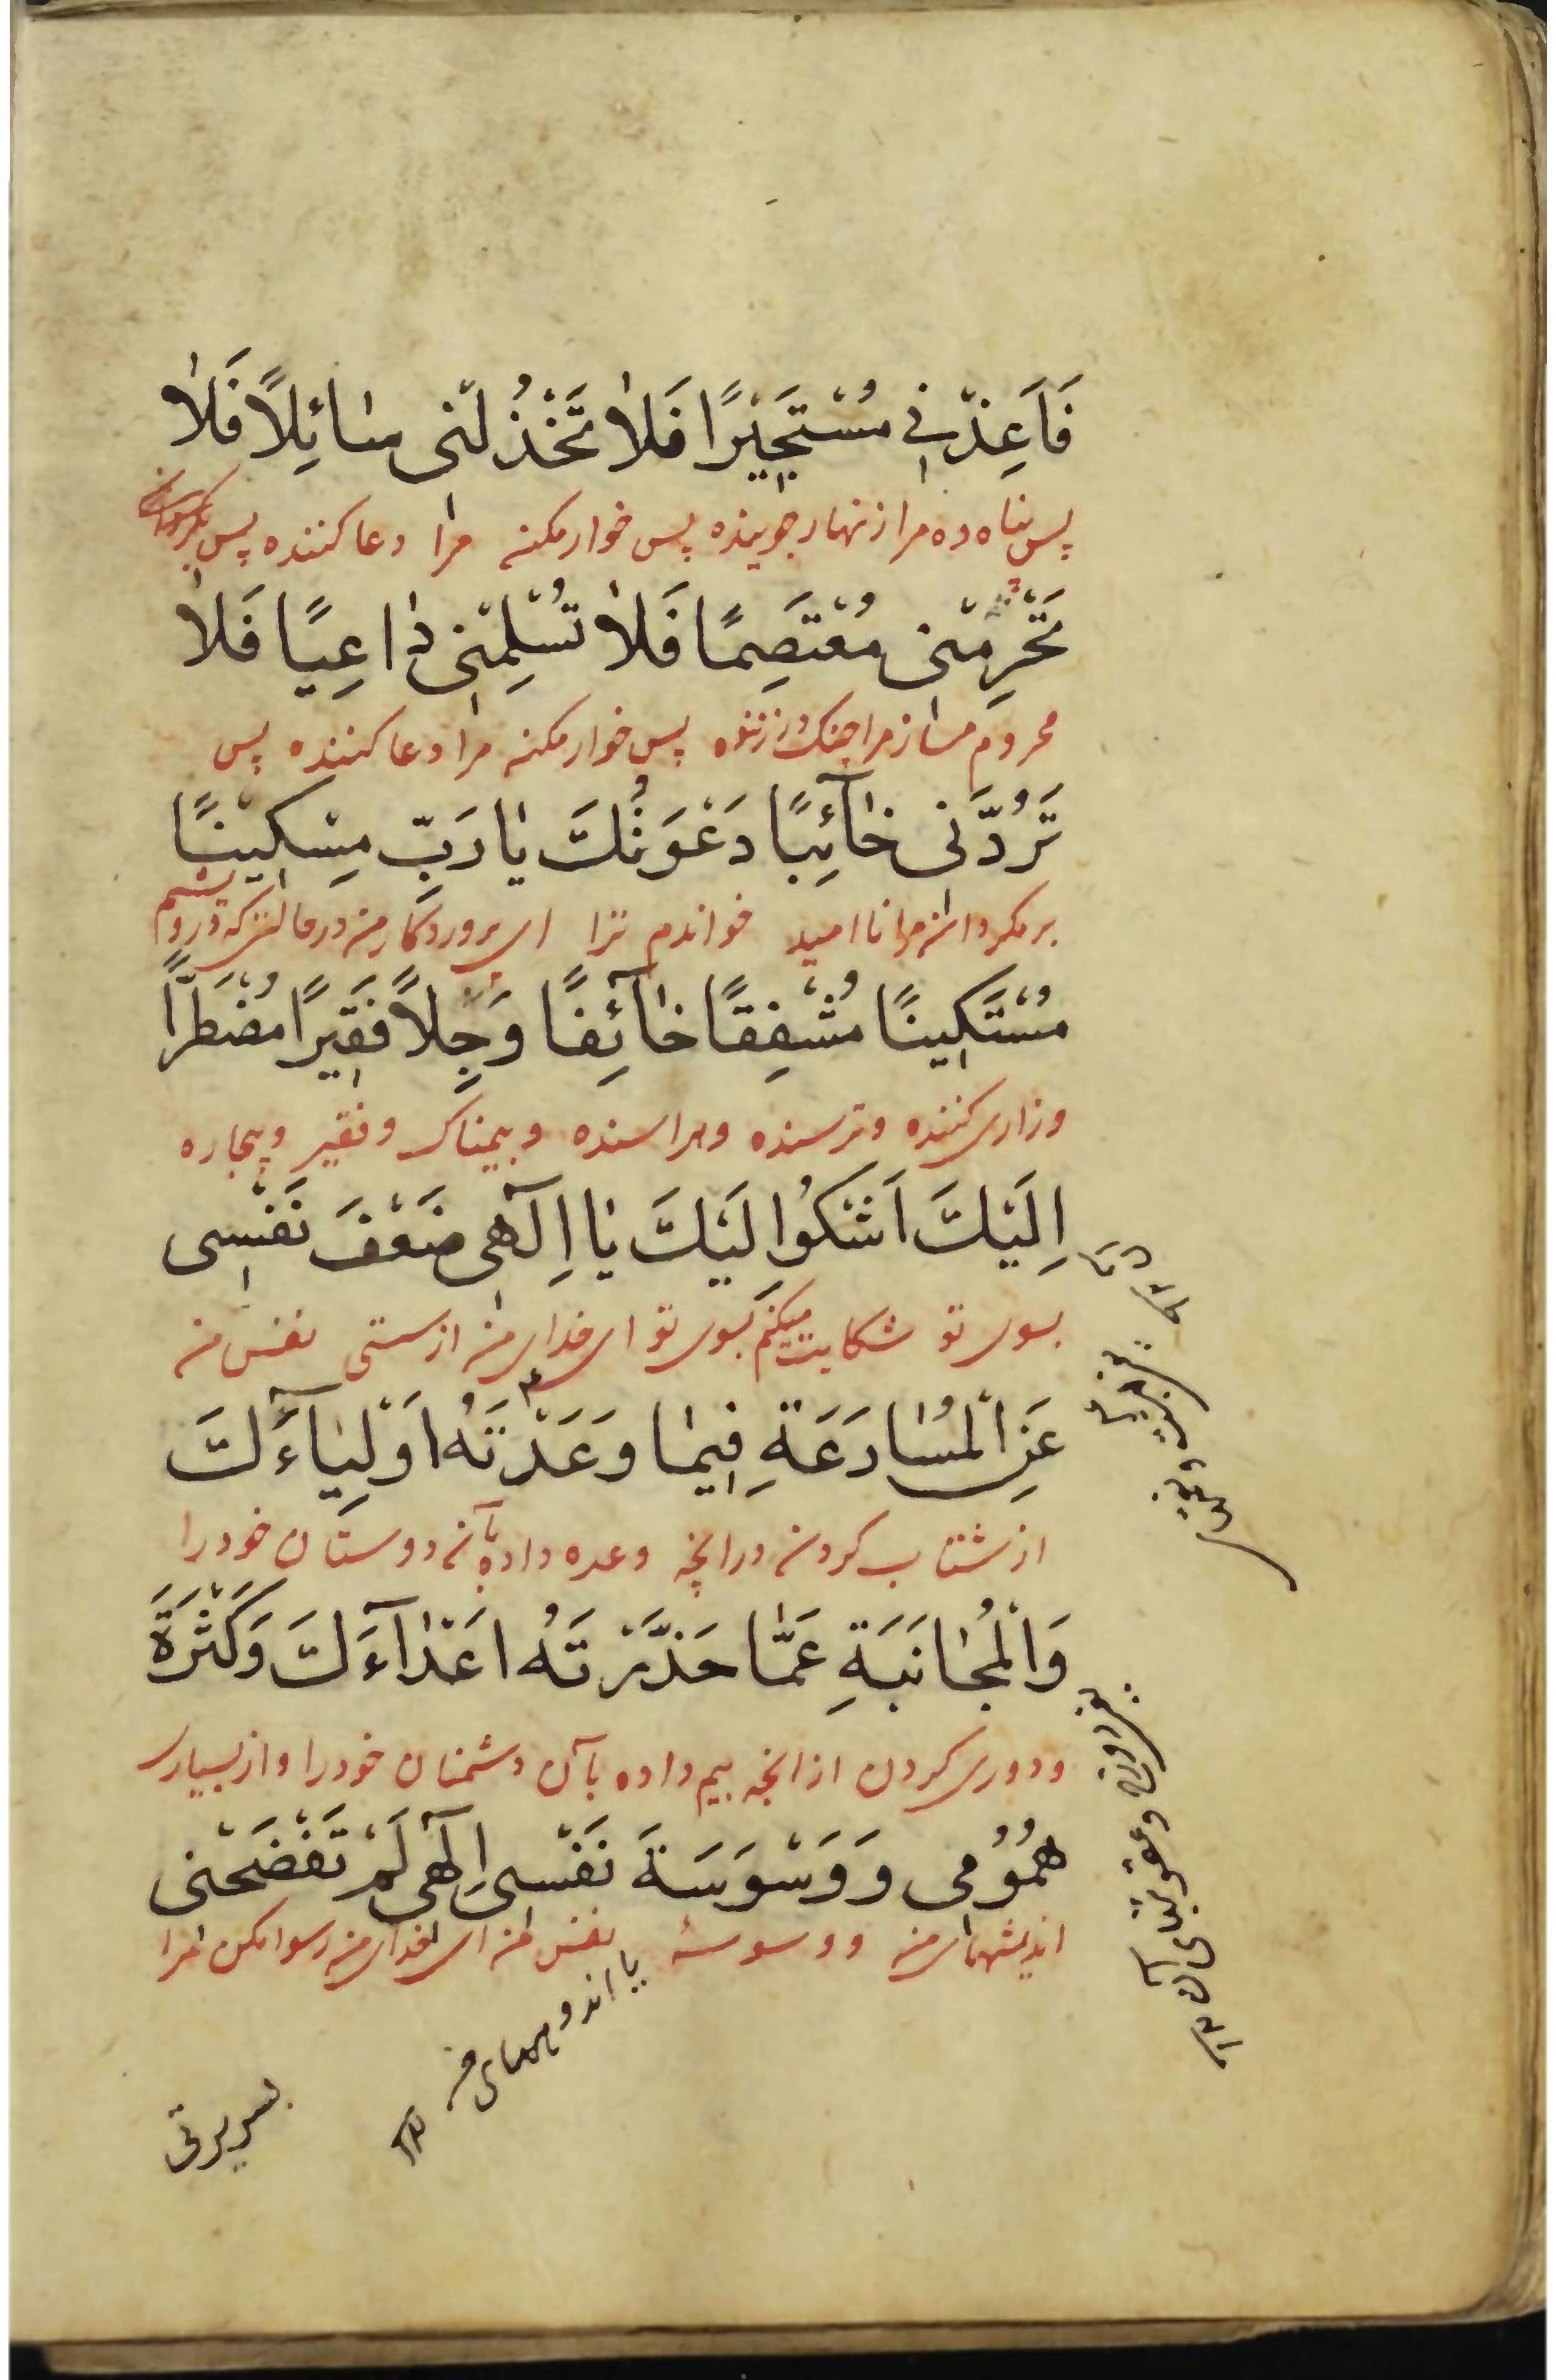 فَاَعِذْنِی مُسْتَجِیْرًا فَلاٰ تَخْذُلْنی سٰائِلاً فَلاٰ
پس پناه ده مرا زنهار جوینده پس خوار مکن مرا دعا کننده پس
تَحْرِمْنی مُعْتَصِمًا فَلاٰ تُسْلِمْنی دٰاعِیًا فَلاٰ
محروم مساز مرا چنک در زننده پس خوار مکن مرا دعا کننده پس
تَرُدَّنی خٰآئِبًا دَعَوْتُكَ یٰا رَبِّ مِسْکِیْنًا
برمکردان مرا ناامید خواندم ترا ای پروردکار من در حالتی که درویشم
مُسْتَکِینًا مُشْفِقًا خٰآئِفًا وَجِلاً فَقِیرًا مُضْطَرًّا
و زاری کننده و ترسنده و هراسنده و بیمناک و فقیر و بیچاره
اِلَیْكَ اَشْکُوا لَیْكَ یٰا اِلٓهی ضَعْفَ نَفْسی
بسوی تو شکایت میکنم بسوی تو ای خدای من از سستی نفس من
عَنِ الْمُسٰارَعَةِ فِیمٰا وَعَدْتَهُ اَوْلِیٰآءَكَ
از شتاب کردن در انچه وعده داده بآن دوستان خود را
وَالْمُجٰانَبَةِ عَمّٰا حَذَّرْتَهُ اَعْدٰآءَكَ وَکَثْرَةَ
و دوری کردن از انچه بیم داده بآن دشمنان خود را و از بسیاری
هُمُوُمی وَوَسْوَسَةَ نَفْسی اِلٓهی لَمْ تَفْضَحْنی
اندیشهای من و وسوسۀ نفس من ای خدای من رسوا مکن مرا
یا اندوههای من
بسریرتی